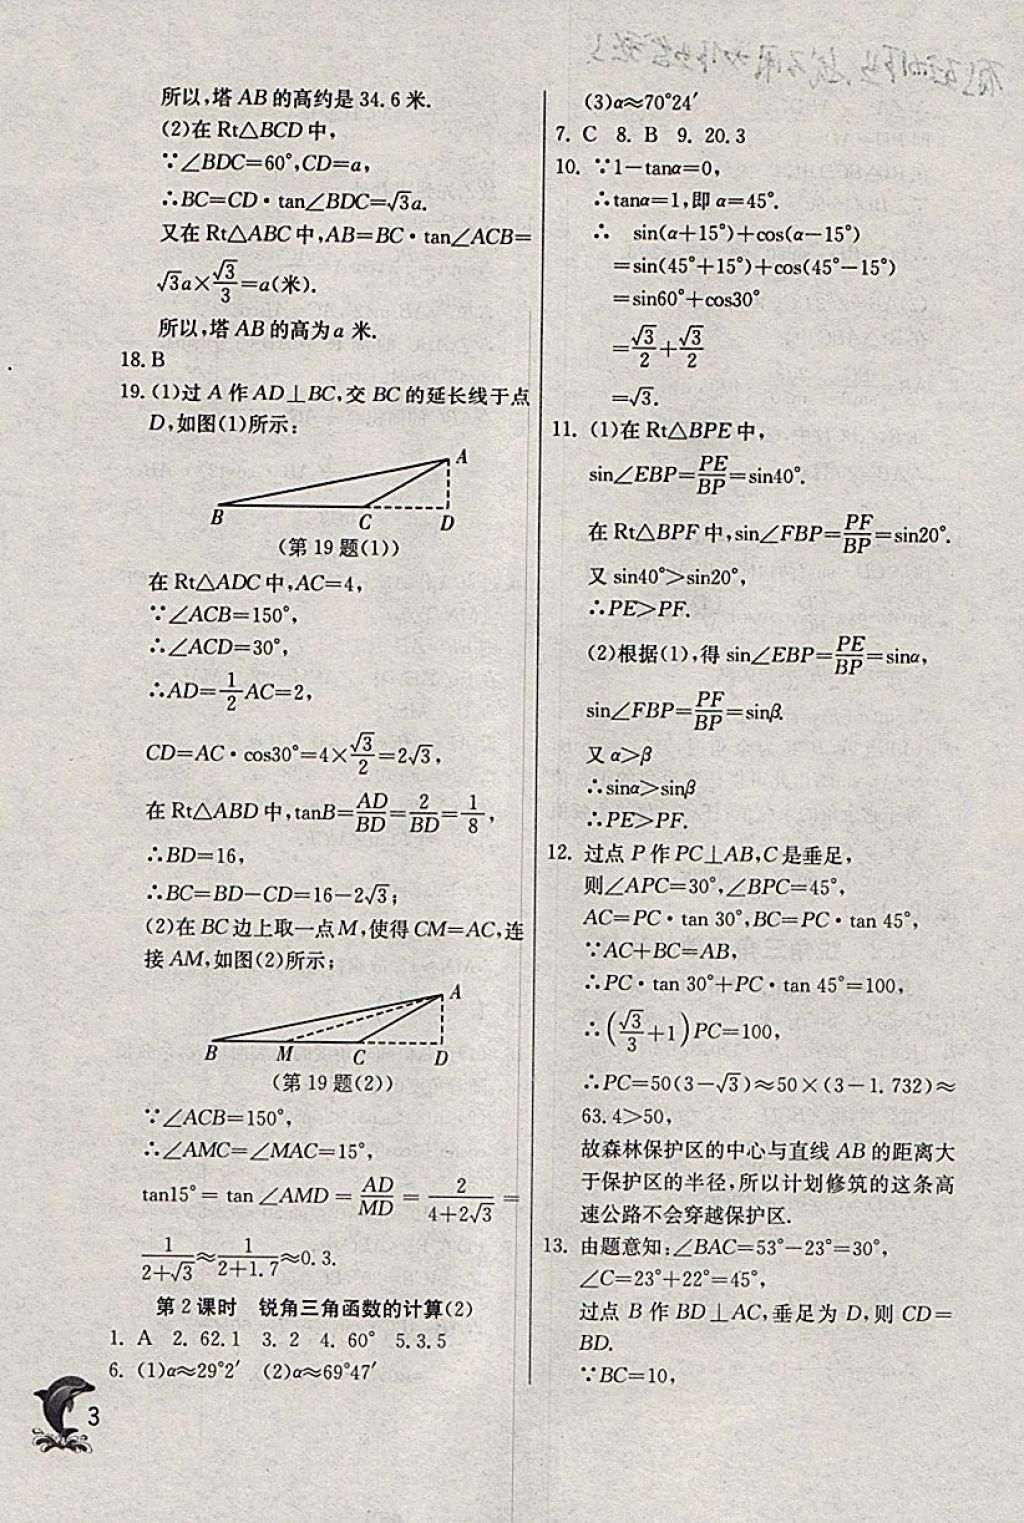 所以,塔 AB 的高约是 34.6 米.
(2)在 Rt△BCD 中,
∵∠BDC=60°,CD=a,
∴BC=CD·tan∠BDC=√3a.
又在 Rt△ABC 中,AB=BC·tan∠ACB=
√3a×√3/3=a(米).
所以,塔 AB 的高为 a 米.
18. B
19. (1)过 A 作 AD⊥BC,交 BC 的延长线于点
D,如图(1)所示:
A
B C D
(第 19 题(1))
在 Rt△ADC 中,AC=4,
∵∠ACB=150°,
∴∠ACD=30°,
∴AD=1/2AC=2,
CD=AC·cos30°=4×√3/2=2√3,
在 Rt△ABD 中,tanB=AD/BD=2/BD=1/8,
∴BD=16,
∴BC=BD-CD=16-2√3;
(2)在 BC 边上取一点 M,使得 CM=AC,连
接 AM,如图(2)所示;
A
B M C D
(第 19 题(2))
∵∠ACB=150°,
∴∠AMC=∠MAC=15°,
tan15°=tan∠AMD=AD/MD=2/(4+2√3)=
1/(2+√3)≈1/(2+1.7)≈0.3.
第 2 课时 锐角三角函数的计算(2)
1. A 2. 62.1 3. 2 4. 60° 5. 3.5
6. (1)α≈29°2′ (2)α≈69°47′
3
(3)α≈70°24′
7. C 8. B 9. 20.3
10. ∵1-tanα=0,
∴tanα=1,即 α=45°.
∴ sin(α+15°)+cos(α-15°)
=sin(45°+15°)+cos(45°-15°)
=sin60°+cos30°
=√3/2+√3/2
=√3.
11. (1)在 Rt△BPE 中,
sin∠EBP=PE/BP=sin40°.
在 Rt△BPF 中,sin∠FBP=PF/BP=sin20°.
又 sin40°>sin20°,
∴PE>PF.
(2)根据(1),得 sin∠EBP=PE/BP=sinα,
sin∠FBP=PF/BP=sinβ.
又 α>β
∴sinα>sinβ
∴PE>PF.
12. 过点 P 作 PC⊥AB,C 是垂足,
则∠APC=30°,∠BPC=45°,
AC=PC·tan 30°,BC=PC·tan 45°,
∵AC+BC=AB,
∴PC·tan 30°+PC·tan 45°=100,
∴(√3/3+1)PC=100,
∴PC=50(3-√3)≈50×(3-1.732)≈
63.4>50,
故森林保护区的中心与直线 AB 的距离大
于保护区的半径,所以计划修筑的这条高
速公路不会穿越保护区.
13. 由题意知:∠BAC=53°-23°=30°,
∠C=23°+22°=45°,
过点 B 作 BD⊥AC,垂足为 D,则 CD=
BD.
∵BC=10,